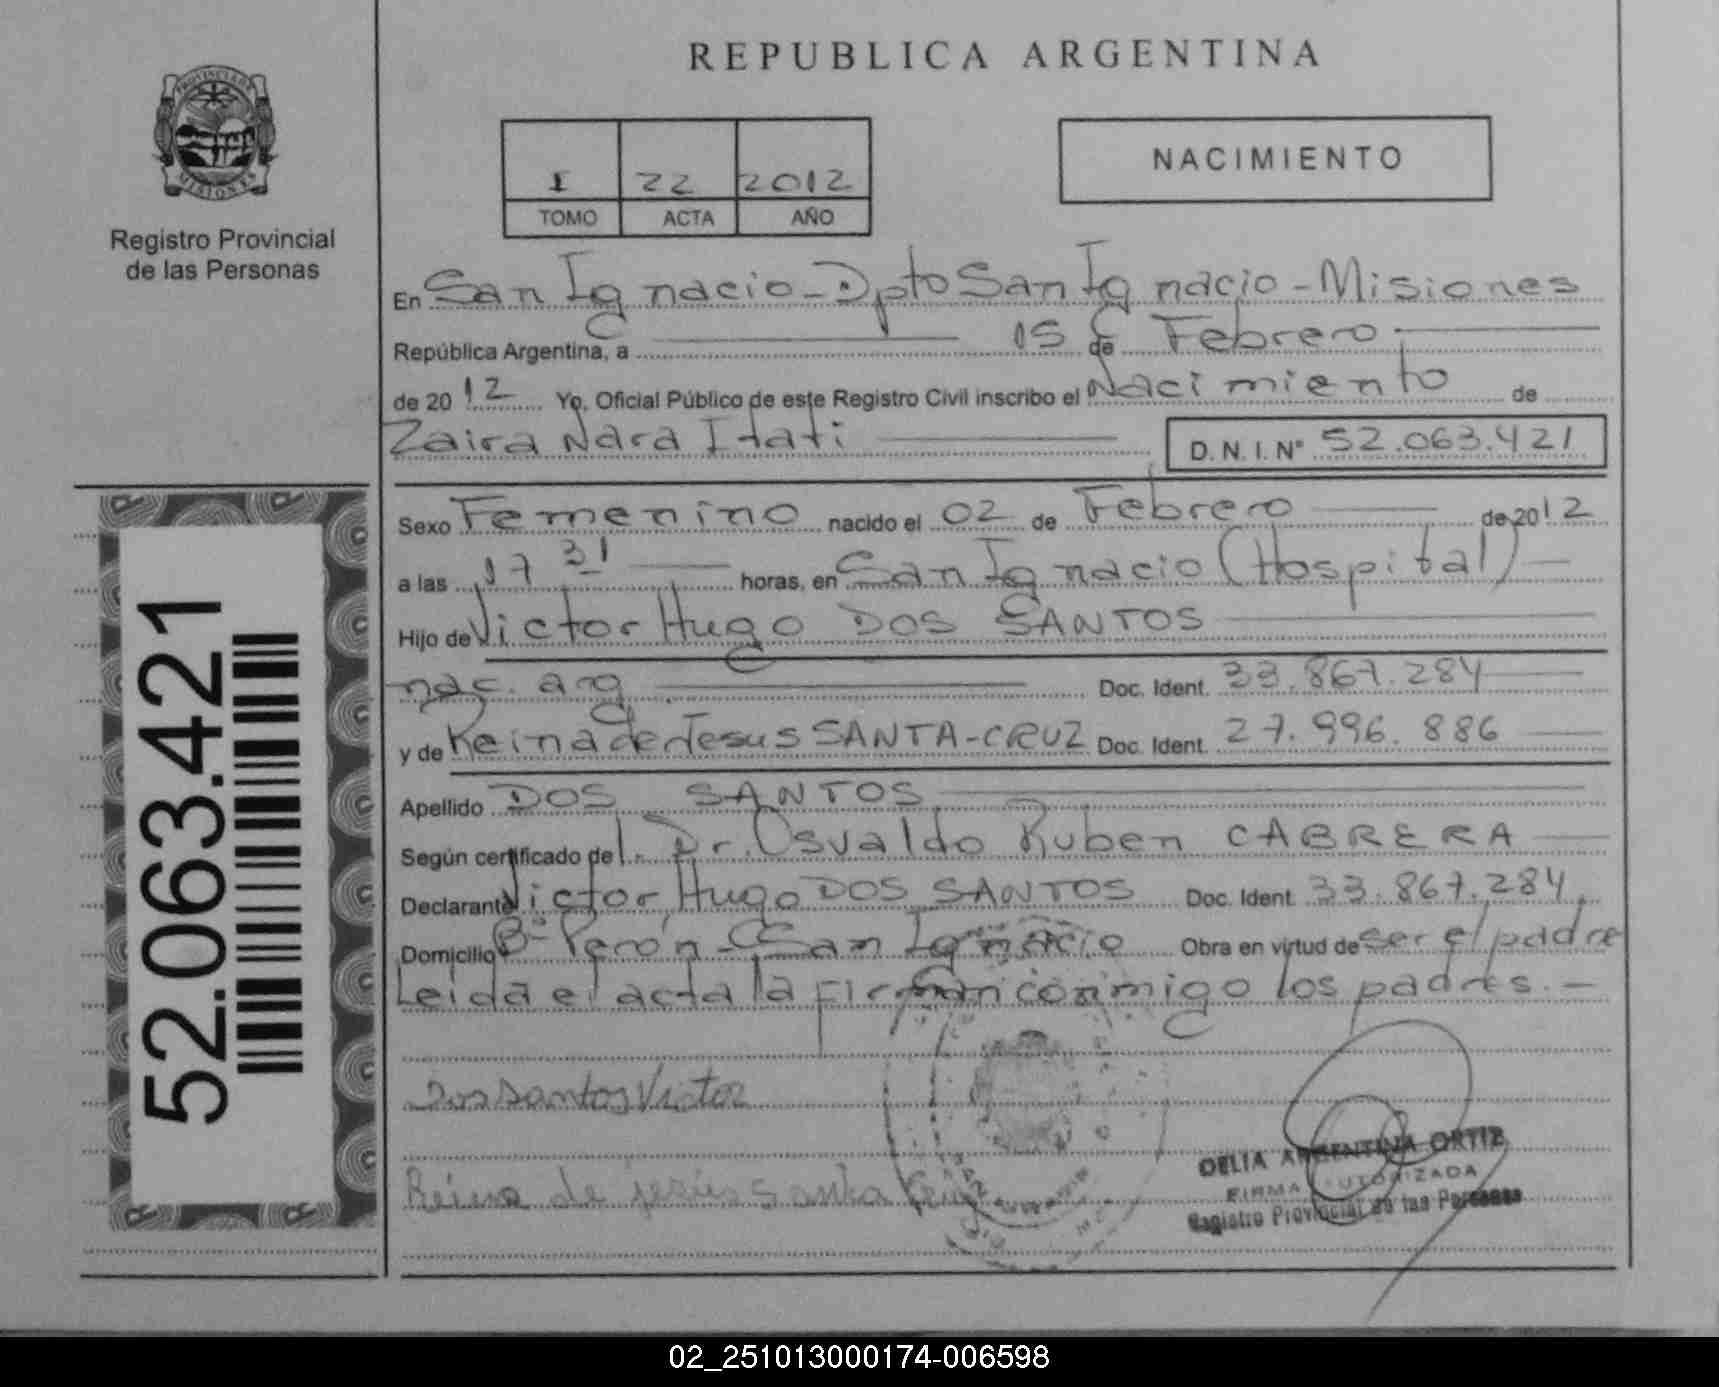 REPUBLICA ARGENTINA
PROVINCIA DE MISIONES
Registro Provincial
de las Personas
I 22 2012
TOMO ACTA AÑO
NACIMIENTO
En San Ignacio - Dpto San Ignacio - Misiones
República Argentina, a 15 de Febrero
de 2012 Yo, Oficial Público de este Registro Civil inscribo el Nacimiento de
Zaira Nara Itati D. N. I. Nº 52.063.421
Sexo Femenino nacido el 02 de Febrero de 2012
a las 17 31 horas, en San Ignacio (Hospital)
Hijo de Victor Hugo DOS SANTOS
nac. arg Doc. Ident. 33.867.284
y de Reina de Jesus SANTA-CRUZ Doc. Ident. 27.996.886
Apellido DOS SANTOS
Según certificado del Dr. Osvaldo Ruben CABRERA
Declarante Victor Hugo DOS SANTOS Doc. Ident. 33.867.284
Domicilio Bº Perón - San Ignacio Obra en virtud de ser el padre
Leida el acta la firman conmigo los padres. -
Dos Santos Victor
Reina de jesús Santa Cruz
DELIA ARGENTINA ORTIZ
FIRMA AUTORIZADA
Registro Provincial de las Personas
52.063.421
02_251013000174-006598